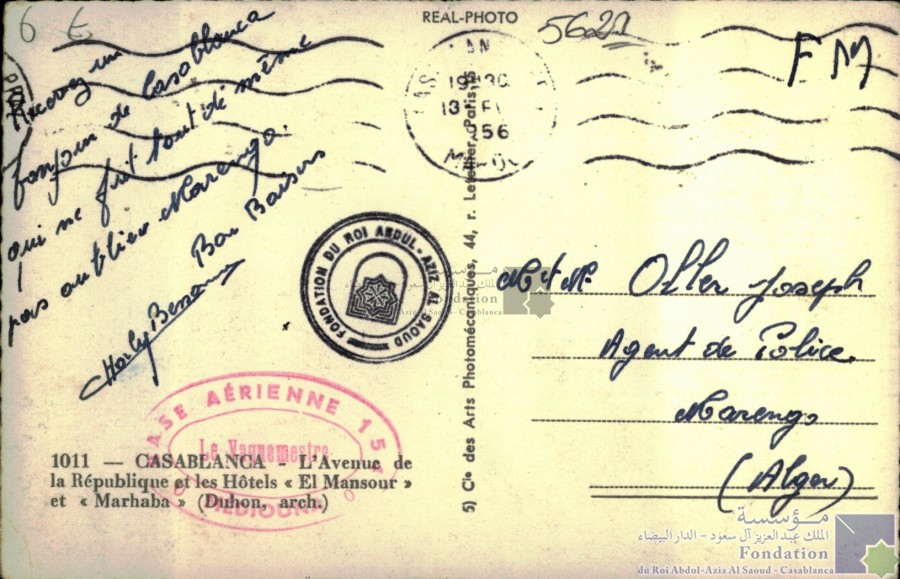 6 €
REAL-PHOTO
5621
F M
Recevez un
bonjour de Casablanca
qui ne fait tout de même
pas oublier Marengo.
Bon Baisers
19 30
13
1956
FONDATION DU ROI ABDUL-AZIZ AL SAOUD
مؤسسة
الملك عبدالعزيز آل سعود - الدار البيضاء
Fondation
du Roi Abdul-Aziz Al Saoud - Casablanca
M et M.
Oller Joseph
Agent de Police
Marengo
(Alger)
BASE AÉRIENNE 151
Le Vaguemestre
MEDIOUNA
1011 — CASABLANCA - L'Avenue de
la République et les Hôtels « El Mansour »
et « Marhaba » (Duhon, arch.)
5) Cie des Arts Photomécaniques, 44, r. Letellier, Paris
مؤسسة
الملك عبدالعزيز آل سعود - الدار البيضاء
Fondation
du Roi Abdul-Aziz Al Saoud - Casablanca